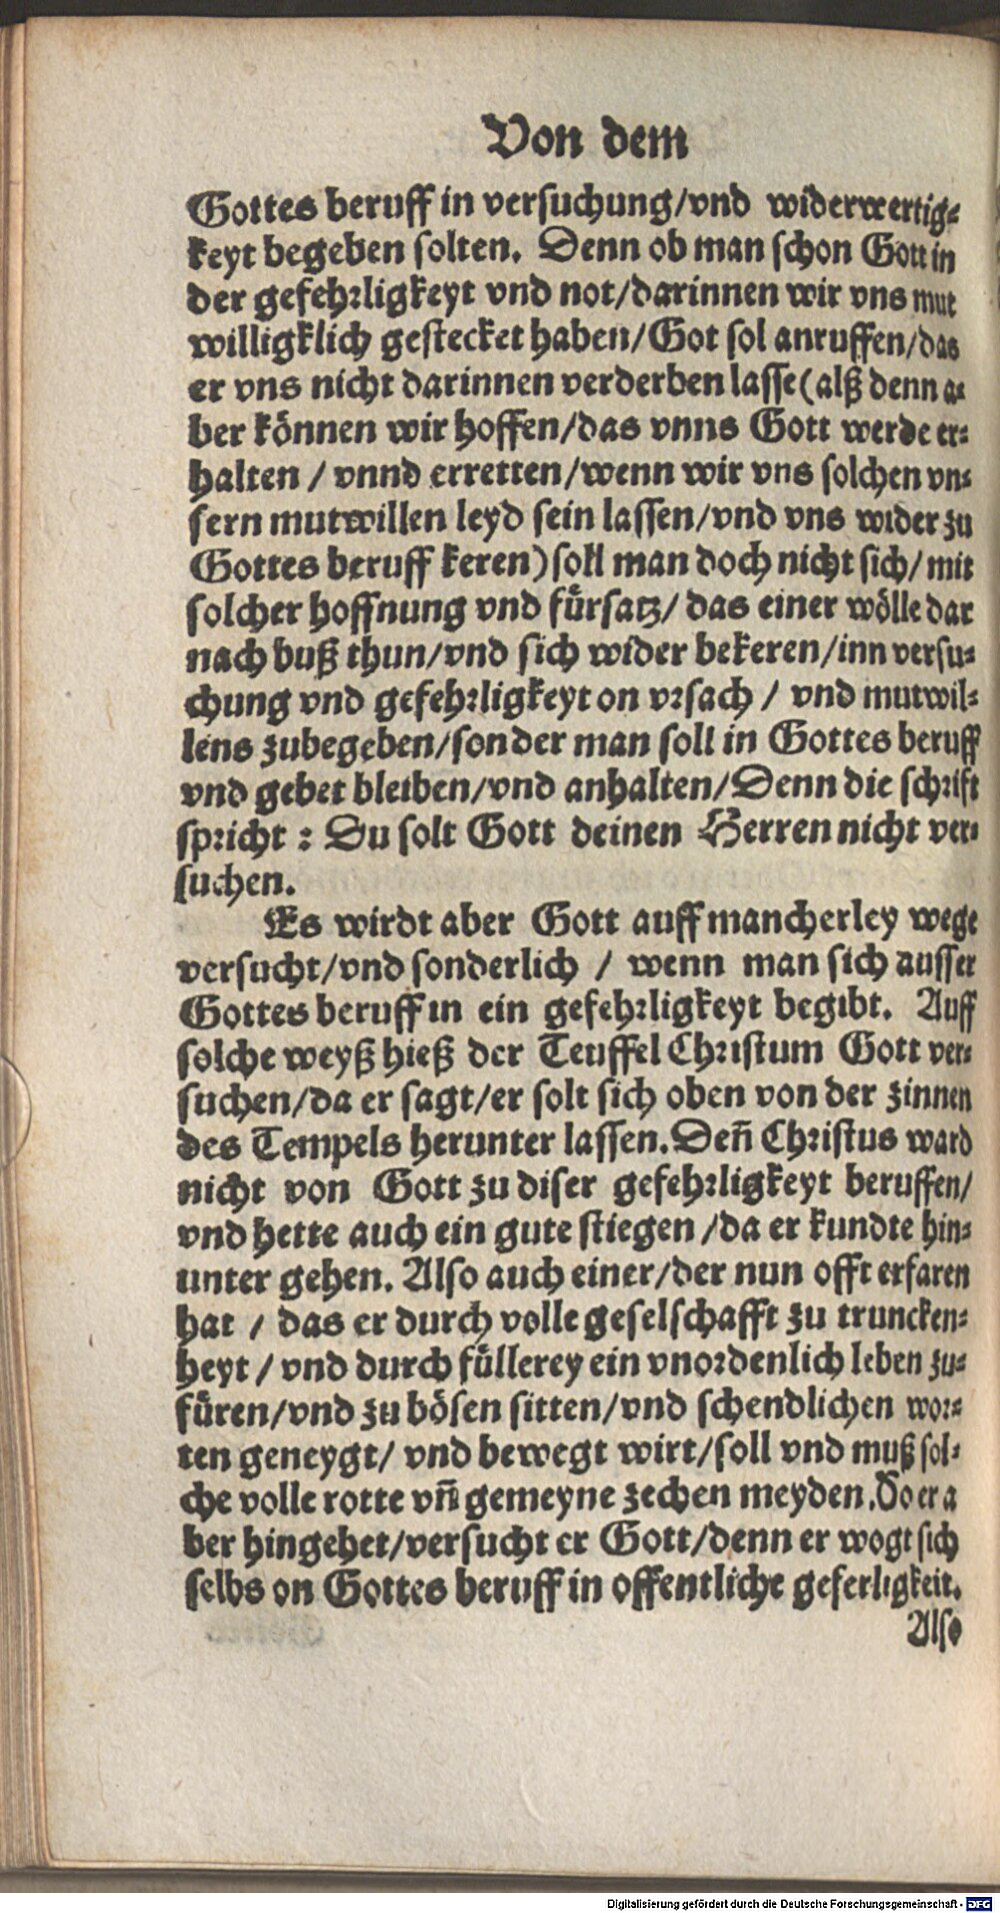 Von dem
Gottes beruff in versuchung/vnd widerwertig⸗
keyt begeben solten. Denn ob man schon Gott in
der gefehrligkeyt vnd not/darinnen wir vns mut
willigklich gestecket haben/Got sol anruffen/das
er vns nicht darinnen verderben lasse(alß denn a⸗
ber können wir hoffen/das vnns Gott werde er⸗
halten / vnnd erretten/wenn wir vns solchen vn⸗
sern mutwillen leyd sein lassen/vnd vns wider zu
Gottes beruff keren)soll man doch nicht sich/ mit
solcher hoffnung vnd fürsatz/ das einer wölle dar
nach buß thun/vnd sich wider bekeren/inn versu⸗
chung vnd gefehrligkeyt on vrsach / vnd mutwil⸗
lens zubegeben/sonder man soll in Gottes beruff
vnd gebet bleiben/vnd anhalten/Denn die schrift
spricht : Du solt Gott deinen Herren nicht ver⸗
suchen.
Es wirdt aber Gott auff mancherley wege
versucht/vnd sonderlich / wenn man sich ausser
Gottes beruff in ein gefehrligkeyt begibt. Auff
solche weyß hieß der Teuffel Christum Gott ver⸗
suchen/da er sagt/er solt sich oben von der zinnen
des Tempels herunter lassen. Deñ Christus ward
nicht von Gott zu diser gefehrligkeyt beruffen/
vnd hette auch ein gute stiegen /da er kundte hin⸗
unter gehen. Also auch einer/der nun offt erfaren
hat / das er durch volle geselschafft zu truncken⸗
heyt / vnd durch füllerey ein vnordenlich leben zu⸗
füren/vnd zu bösen sitten/vnd schendlichen wor⸗
ten geneygt/ vnd bewegt wirt/soll vnd muß sol⸗
che volle rotte vñ gemeyne zechen meyden. So er a
ber hingehet/versucht er Gott/denn er wogt sich
selbs on Gottes beruff in offentliche geferligkeit.
Also
Digitalisierung gefördert durch die Deutsche Forschungsgemeinschaft - DFG